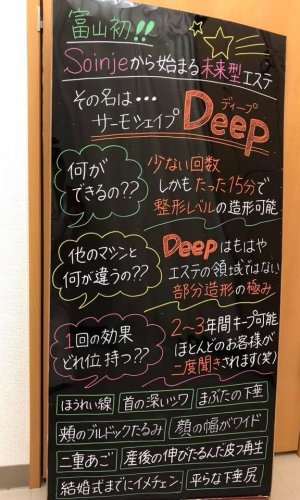 富山初!!
Soinjeから始まる未来型エステ
その名は・・・
サーモシェイプ
ディープ
Deep
何が
できるの??
少ない回数
しかもたった15分で
整形レベルの造形可能
他のマシンと
何が違うの??
Deepはもはや
エステの領域ではない
部分造形の極み
1回の効果
どれ位持つ??
2～3年間キープ可能
ほとんどのお客様が
二度聞きされます(笑)
ほうれい線
首の深いシワ
まぶたの下垂
頬のブルドックたるみ
顔の幅がワイド
二重あご
産後の伸びたるんだ皮フ再生
結婚式までにイメチェン
平らな下垂尻